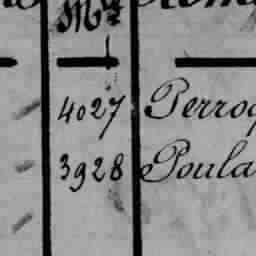 4027 Perroq
3928 Poula